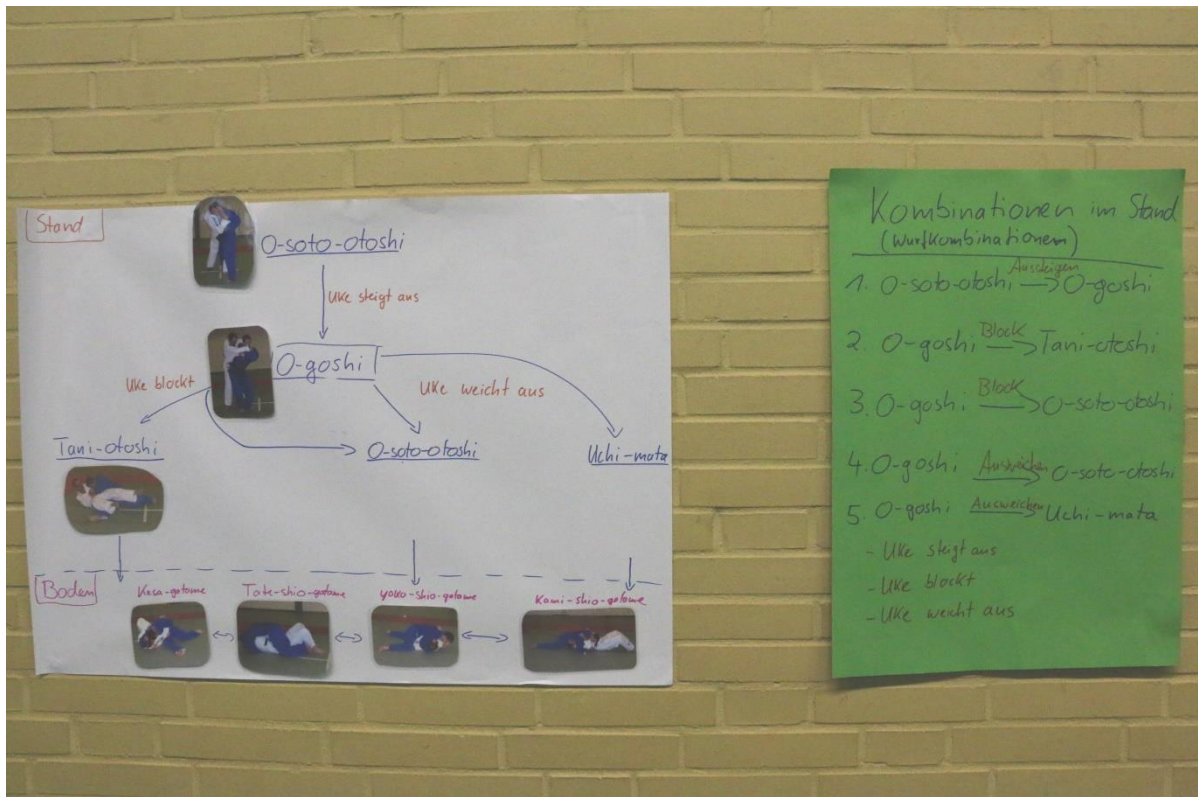 Stand
O-soto-otoshi
Uke steigt aus
O-goshi
Uke blockt
Uke weicht aus
Tani-otoshi
O-soto-otoshi
Uchi-mata
Boden
Kesa-gatame
Tate-shio-gatame
yoko-shio-gatame
Kami-shio-gatame
Kombinationen im Stand
(Wurfkombinationen)
1. O-soto-otoshi Aussteigen → O-goshi
2. O-goshi Block → Tani-otoshi
3. O-goshi Block → O-soto-otoshi
4. O-goshi Ausweichen → O-soto-otoshi
5. O-goshi Ausweichen → Uchi-mata
- Uke steigt aus
- Uke blockt
- Uke weicht aus